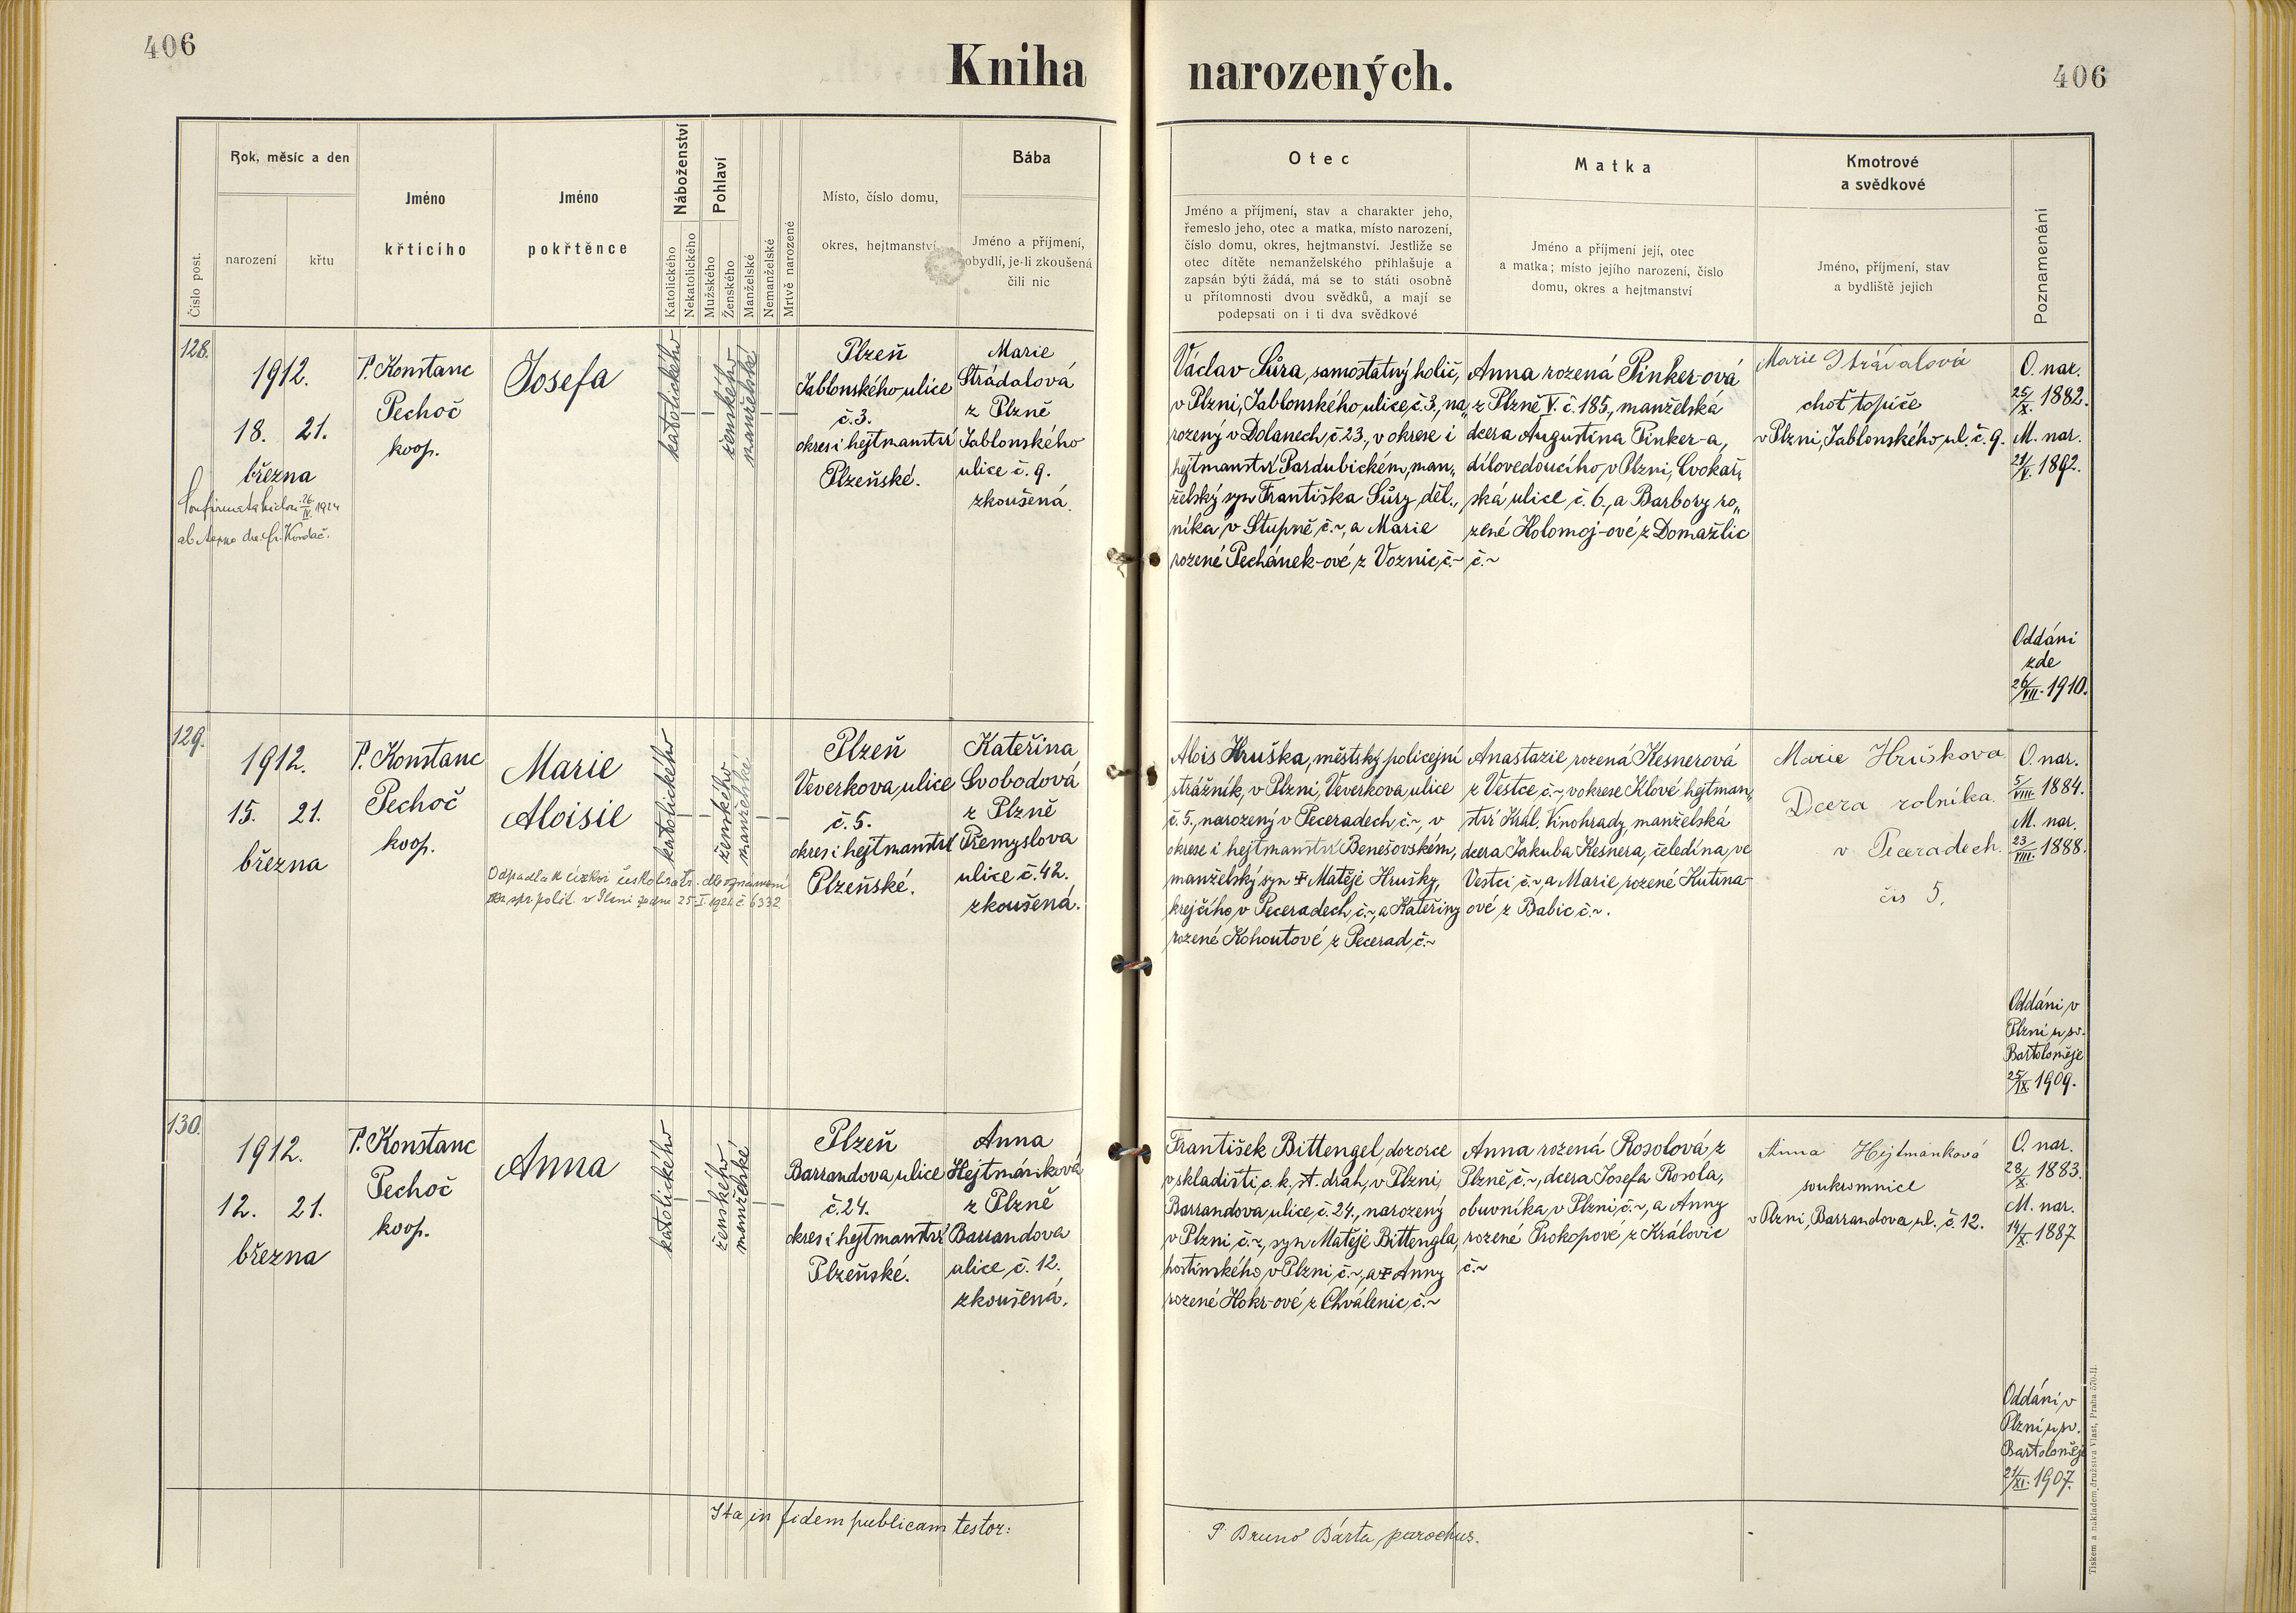 406
Kniha narozených.
406
Číslo post.
Rok, měsíc a den
narození
křtu
Jméno
křticího
Jméno
pokřtěnce
Náboženství
Katolického
Nekatolického
Pohlaví
Mužského
Ženského
Manželské
Nemanželské
Mrtvě narozené
Místo, číslo domu,
okres, hejtmanství
Bába
Jméno a příjmení,
obydlí, je-li zkoušená
čili nic
Otec
Jméno a příjmení, stav a charakter jeho,
řemeslo jeho, otec a matka, místo narození,
číslo domu, okres, hejtmanství. Jestliže se
otec dítěte nemanželského přihlašuje a
zapsán býti žádá, má se to státi osobně
u přítomnosti dvou svědků, a mají se
podepsati on i ti dva svědkové
Matka
Jméno a příjmení její, otec
a matka; místo jejího narození, číslo
domu, okres a hejtmanství
Kmotrové
a svědkové
Jméno, příjmení, stav
a bydliště jejich
Poznamenání
128.
1912.
18. 21.
března
P. Konstanc
Pechoč
koop.
Josefa
katolického
ženského
manželské
Plzeň
Jablonského ulice
č. 3.
okres i hejtmanství
Plzeňské.
Marie
Strádalová
z Plzně
Jablonského
ulice č. 9.
zkoušená.
Václav Sůra, samostatný holič,
v Plzni, Jablonského ulice, č. 3, na„
rozený v Dolanech, č. 23., v okrese i
hejtmanství Pardubickém, man„
želský syn Františka Sůry, děl„
níka, v Stupně, č. ~, a Marie
rozené Pechánek-ové z Voznic, č. ~
Anna rozená Pinker-ová
z Plzně V. č. 185, manželská
dcera Augustina Pinker-a,
dílovedoucího v Plzni, Cvokař„
ská ulice č. 6., a Barbory ro„
zené Holomoj-ové z Domažlic
č. ~
choť topiče
v Plzni, Jablonského ul. č. 9.
O. nar.
25/X. 1882.
M. nar.
21/V. 1892.
Oddáni
zde
26/VII. 1910.
129.
1912.
15. 21.
března
P. Konstanc
Pechoč
koop.
Marie
Aloisie
Odpadla k církvi českobratr. dle oznámení
katolického
ženského
manželské
Plzeň
Veverkova ulice
č. 5.
okres i hejtmanství
Plzeňské.
Kateřina
Svobodová
z Plzně
Přemyslova
ulice č. 42.
zkoušená.
Alois Hruška, městský policejní
strážník, v Plzni, Veverkova ulice
č. 5., narozený v Peceradech, č. ~, v
okrese i hejtmanství Benešovském,
manželský syn ✝ Matěje Hrušky,
krejčího v Peceradech č. ~, a Kateřiny
rozené Kohoutové z Pecerad, č. ~
Anastazie rozená Kesnerová
z Vestce č. ~, v okrese Jílové hejtman„
ství Král. Vinohrady, manželská
dcera Jakuba Kesnera, čeledína ve
Vestci č. ~, a Marie rozené Kutina-
ové z Babic č. ~.
Marie Hrušková
Dcera rolníka
v Peceradech.
čis 5.
O. nar.
5/VIII. 1884.
M. nar.
23/VIII. 1888.
Oddáni v
Plzni u sv.
Bartoloměje
25/IX. 1909.
130.
1912.
12. 21.
března
P. Konstanc
Pechoč
koop.
Anna
katolického
ženského
manželské
Plzeň
Barrandova ulice
č. 24.
okres i hejtmanství
Plzeňské.
Anna
Hejtmánková
z Plzně
Barrandova
ulice č. 12.
zkoušená.
František Bittengel, dozorce
v skladišti c. k. st. drah, v Plzni,
Barrandova ulice, č. 24., narozený
v Plzni, č. ~, syn Matěje Bittengla,
hostinského v Plzni, č. ~, a ✝ Anny
rozené Hokr-ové z Chválenic, č. ~
Anna rozená Rosolová, z
Plzně č. ~, dcera Josefa Rosola,
obuvníka v Plzni č. ~, a Anny
rozené Prokopové z Kralovic
č. ~
Anna Hejtmánková
soukromnice
v Plzni, Barrandova ul. č. 12.
O. nar.
28/X. 1883.
M. nar.
14/X. 1887
Oddáni v
Plzni u sv.
Bartoloměje
21/XI. 1907.
Ita in fidem publicam testor:
P. Bruno Bárta, parochus.
Tiskem a nákladem družstva Vlast, Praha 570-II.